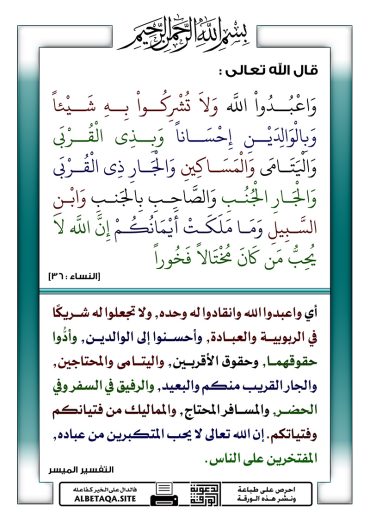 بِسْمِ اللَّهِ الرَّحْمَٰنِ الرَّحِيمِ
قال الله تعالى :
وَاعْبُـدُواْ اللَّه وَلاَ تُشْرِكُــواْ بِــهِ شَــيْئاً
وَبِالْوَالِدَيْــنِ إِحْسَــاناً وَبِــذِي الْقُــرْبَى
وَالْيَتَامَى وَالْمَسَــاكِينِ وَالْجَارِ ذِي الْقُرْبَى
وَالْجَارِ الْجُنُـبِ وَالصَّاحِبِ بِالجَنبِ وَابْنِ
السَّبِيلِ وَمَـا مَلَكَتْ أَيْمَانُكُـمْ إِنَّ اللَّه لاَ
يُحِبُّ مَن كَانَ مُخْتَالاً فَخُوراً
[النساء : ٣٦]
أي واعبدوا الله وانقادوا له وحده, ولا تجعلوا له شريكًا
في الربوبية والعبادة, وأحسنوا إلى الوالدين, وأدُّوا
حقوقهما, وحقوق الأقربين, واليتامى والمحتاجين,
والجار القريب منكم والبعيد, والرفيق في السفر وفي
الحضر, والمسافر المحتاج, والمماليك من فتيانكم
وفتياتكم. إن الله تعالى لا يحب المتكبرين من عباده,
المفتخرين على الناس.
التفسير الميسر
احرص على طباعة
ونشر هذه الورقة
الدعوية
الورقة
فالدال على الخير كفاعله
ALBETAQA.SITE